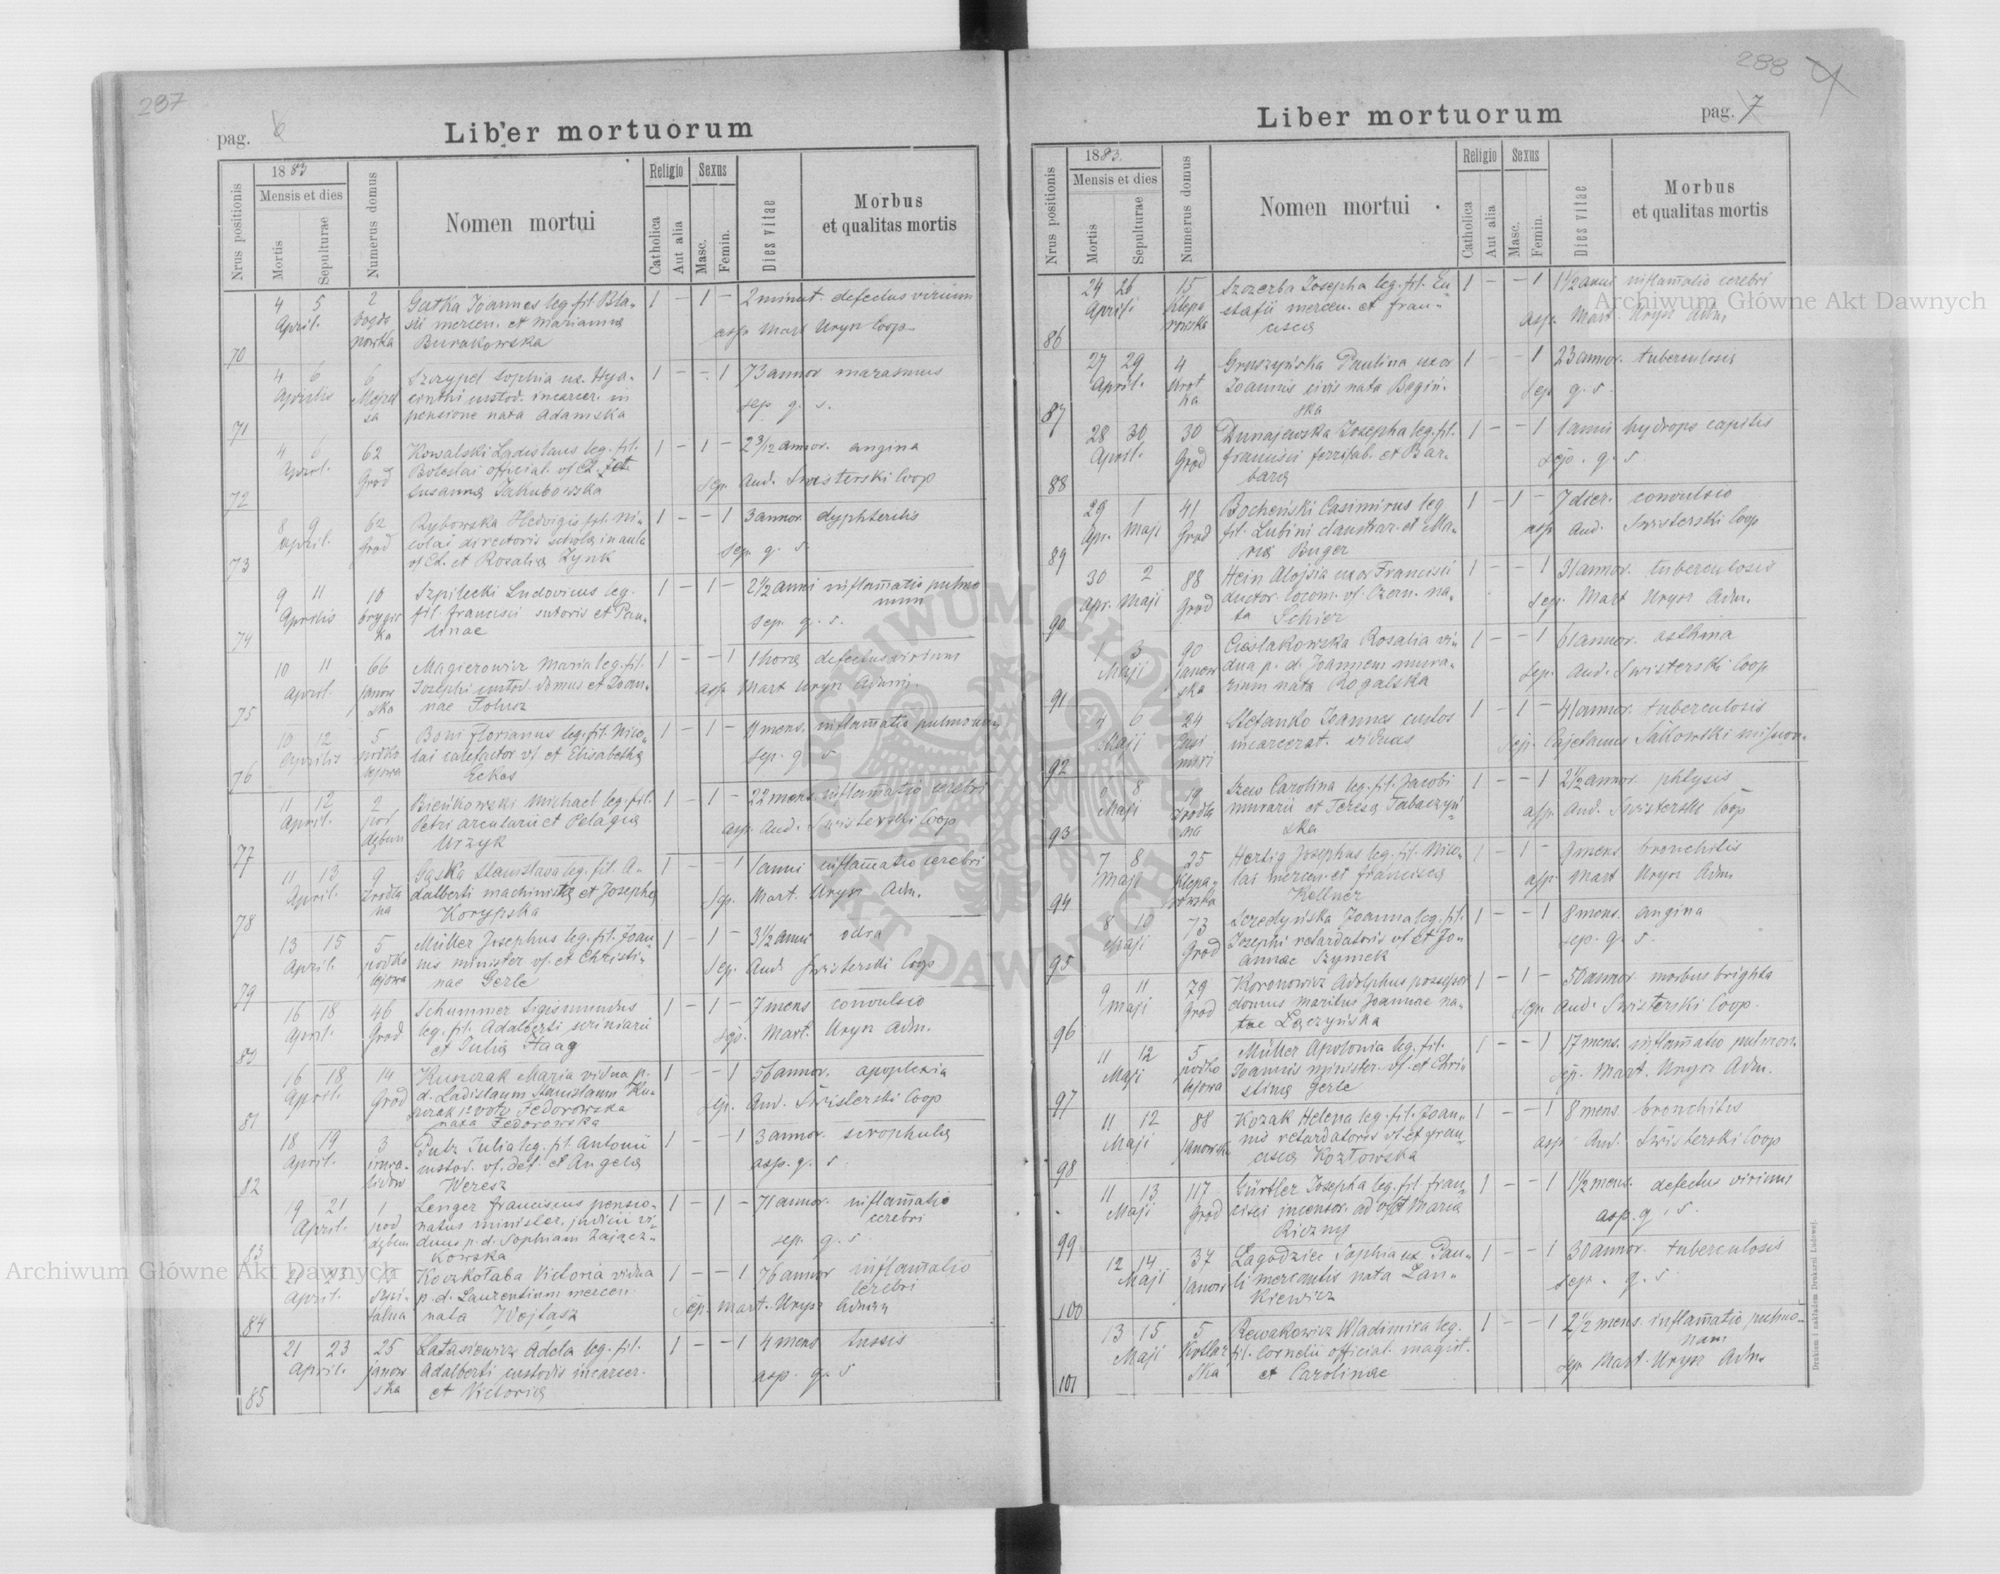 287
pag. 6
Liber mortuorum
Nrus positionis
1883
Mensis et dies
Mortis
Sepulturae
Numerus domus
Nomen mortui
Religio
Catholica
Aut alia
Sexus
Masc.
Femin.
Dies vitae
Morbus
et qualitas mortis
70
4 5
April.
2
Gutka Joannes leg. fil. Bla-
sii mercen. et Marianna
Burakowska
1 – 1 –
2 minut. defectus virium
asp. Mart Uryn Coop.
71
4 6
Aprilis
6
Szczypel Sophia ux. Hya-
cinthi custod. incarcer. in
pensione nata Adamska
1 – – 1
73 annor marasmus
sep. q. s.
72
4 6
April.
62
Grod
Kowalski Ladislaus leg. fil.
Boleslai official.
Susanna Jakubowska
1 – 1 –
2 3/12 annor. angina
sep. And. Swisterski Coop
73
8 9
April.
62
Grod
Rybowska Hedvigis fil. Ni-
colai directoris schola in aula
et Rosalia Zynk
1 – – 1
3 annor. dyphteritis
sep. q. s.
74
9 11
Aprilis
10
brygit
ka
Szpilecki Ludovicus leg.
fil. Francisci sutoris et Pau-
linae
1 – 1 –
2½ anni inflam̄atio pulmo
num
sep. q. s.
75
10 11
April.
66
janow
ska
Magierowicz Maria leg. fil.
Josephi custod. domus et Joan-
nae Tolusz
1 – – 1
1 hora defectus virium
asp Mart Uryn Admi.
76
10 12
Aprilis
5
podko
lejowa
Boni Florianus leg. fil. Nico-
lai calefactor vf. et Elisabetha
Eckes
1 – 1 –
11 mens. inflam̄atio pulmonum
sep. q. s
77
11 12
April.
2
pod
dębem
Bieńkowski Michael leg. fil.
Petri arcularii et Pelagia
Urzyk
1 – 1 –
22 mens. inflam̄atio cerebri
asp. And. Swisterski Coop
78
11 13
April.
9
źródla
na
Sąska Stanislava leg. fil. A-
dalberti machinista et Josepha
Korypska
1 – – 1
1 anni inflam̄atio cerebri
sep. Mart. Uryn Adm.
79
13 15
April.
5
podko
lejowa
Müller Josephus leg. fil. Joan
nis minister vf. et Christi-
nae Gerle
1 – 1 –
3½ anni odra
sep. And Swisterski Coop
80
16 18
April.
46
Grod.
Schummer Sigismundus
leg. fil. Adalberti scriniarii
et Julia Haag
1 – 1 –
7 mens convulsio
sep. Mart. Uryn Adm.
81
16 18
April.
14
Grod
Kunczak Maria vidua p.
d. Ladislaum Stanislaum Ku-
nczak 1º voto Fedorowska
nata Fedorowska
1 – – 1
56 annor. apoplexia
sep. And. Świsterski Coop
82
18 19
April.
3
inwa-
lidów
Putz Julia leg. fil. Antonii
custod. vf. def. et Angela
Weresz
1 – – 1
3 annor. scrophula
asp. q. s.
83
19 21
April.
1
pod
dębem
Lenger Franciscus pensio-
natus minister. judicii vi-
duus p. d. Sophiam Zającz-
kowska
1 – 1 –
71 annor. inflam̄atio
cerebri
sep. q. s
84
21 23
April.
Koczkołaba Victoria vidua
p. d. Laurentium mercen
nata Wojtasz
1 – – 1
76 annor inflam̄atio
cerebri
sep. Mart. Uryn Admin
85
21 23
April.
25
janow
ska
Latasiewicz Adela leg. fil.
Adalberti custodis incarcer.
et Victoria
1 – – 1
4 mens tussis
asp. q. s
288
Liber mortuorum
pag. 7
Nrus positionis
1883.
Mensis et dies
Mortis
Sepulturae
Numerus domus
Nomen mortui
Religio
Catholica
Aut alia
Sexus
Masc.
Femin.
Dies vitae
Morbus
et qualitas mortis
86
24 26
Aprili.
15
klepa
rowska
Szczerba Josepha leg. fil. Eu
stafii mercen. et Fran-
cisca
1 – – 1
1½ anni inflam̄atio cerebri
asp. Mart. Uryn Adm.
87
27 29
April.
4
Grot
ka
Gruszyńska Paulina uxor
Joannis civis nata Bagiń-
ska
1 – – 1
23 annor. tuberculosis
sep q. s.
88
28 30
April.
30
Grod
Dunajewska Josepha leg. fil.
Francisci ferrifab. et Bar-
bara
1 – – 1
1 anni hydrops capitis
sep. q. s
89
29 1
Apr. Maji
41
Grod
Bocheński Casimirus leg
fil. Lubini claustrar. et Ma-
ria Buger
1 – 1 –
7 dier. convulsio
asp And. Swisterski Coop
90
30 2
Apr. Maji
88
Grod
Hein Alojsia uxor Francisci
ductor. locom. vf. Czern. na-
ta Schier
1 – – 1
31 annor. tuberculosis
sep. Mart Uryn Adm.
91
1 3
Maji
90
janow
ska
Cieślakowska Rosalia vi-
dua p. d. Joannem mura-
rium nata Rogalska
1 – – 1
61 annor. asthma
sep. And. Swisterski Coop
92
4 6
Maji
24
Casi
miri
Stefanko Joannes custos
incarcerat. viduus
1 – 1 –
41 annor. tuberculosis
sep. Cajetanus Sułkowski
93
8
Maji
19
źródla
na
Szew Carolina leg. fil. Jacobi
murarii et Teresa Tabaczyń-
ska
1 – – 1
2½ annor phtysis
asp. And. Swisterski Coop
94
7 8
Maji
25
klepa-
rowska
Hertig Josephus leg. fil. Nico-
lai mercen. et Francisca
Kellner
1 – 1 –
9 mens. bronchitis
asp. Mart Uryn Adm
95
8 10
Maji
73
Grod
Szredyńska Joanna leg. fil.
Josephi retardatoris vf. et Jo-
annae Szymek
1 – – 1
8 mens. angina
sep. q. s.
96
9 11
Maji
79
Grod
Koronowicz Adolphus possessor
domus maritus Joannae na-
tae Łączyńska
1 – 1 –
50 annor. morbus brighta
sep. And. Swisterski Coop.
97
11 12
Maji
5
podko
lejowa
Müller Apolonia leg. fil.
Joannis minister. vf. et Chri-
stina Gerle
1 – – 1
17 mens. inflam̄atio pulmon.
sep. Mart. Uryn Adm.
98
11 12
Maji
88
Janowsk
Kozak Helena leg. fil. Joan-
nis retardatoris vf. et Fran-
cisca Kozłowska
1 – – 1
8 mens. bronchitis
asp And. Świsterski Coop
99
11 13
Maji
117
Grod
Gürtler Josepha leg. fil. Fran-
cisci incensor. ad vf. et Maria
Riczny
1 – – 1
1½ mens. defectus virium
asp. q. s.
100
12 14
Maji
37
Janow
Łagodzicz Sophia ux. Pau-
li mercantis nata Lan-
kiewicz
1 – – 1
30 annor. tuberculosis
sep. q. s.
101
13 15
Maji
5
Kotlar
ska
Rewakowicz Wladimira leg.
fil. Cornelii official. magist.
et Carolinae
1 – – 1
2½ mens. inflam̄atio pulmo-
num
sep Mart. Uryn Adm.
Drukiem i nakładem Drukarni Ludowej.
Archiwum Główne Akt Dawnych
Archiwum Główne Akt Dawnych
ARCHIWUM GŁÓWNE AKT DAWNYCH